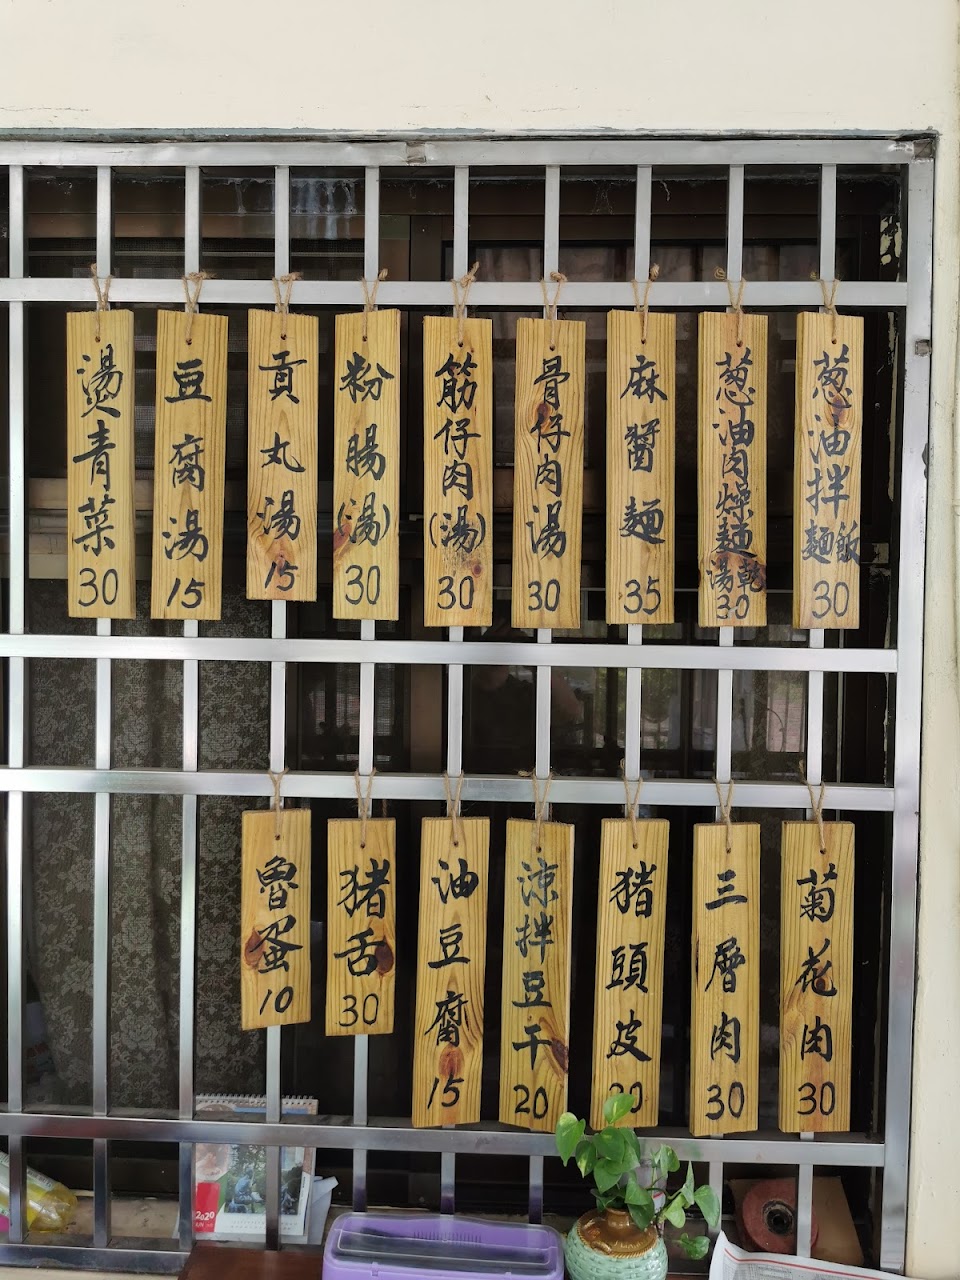 葱油拌麵飯 30
葱油肉燥麵湯乾 30
麻醬麵 35
骨仔肉湯 30
筋仔肉(湯) 30
粉腸(湯) 30
貢丸湯 15
豆腐湯 15
燙青菜 30
菊花肉 30
三層肉 30
猪頭皮
涼拌豆干 20
油豆腐 15
猪舌 30
魯蛋 10
2020